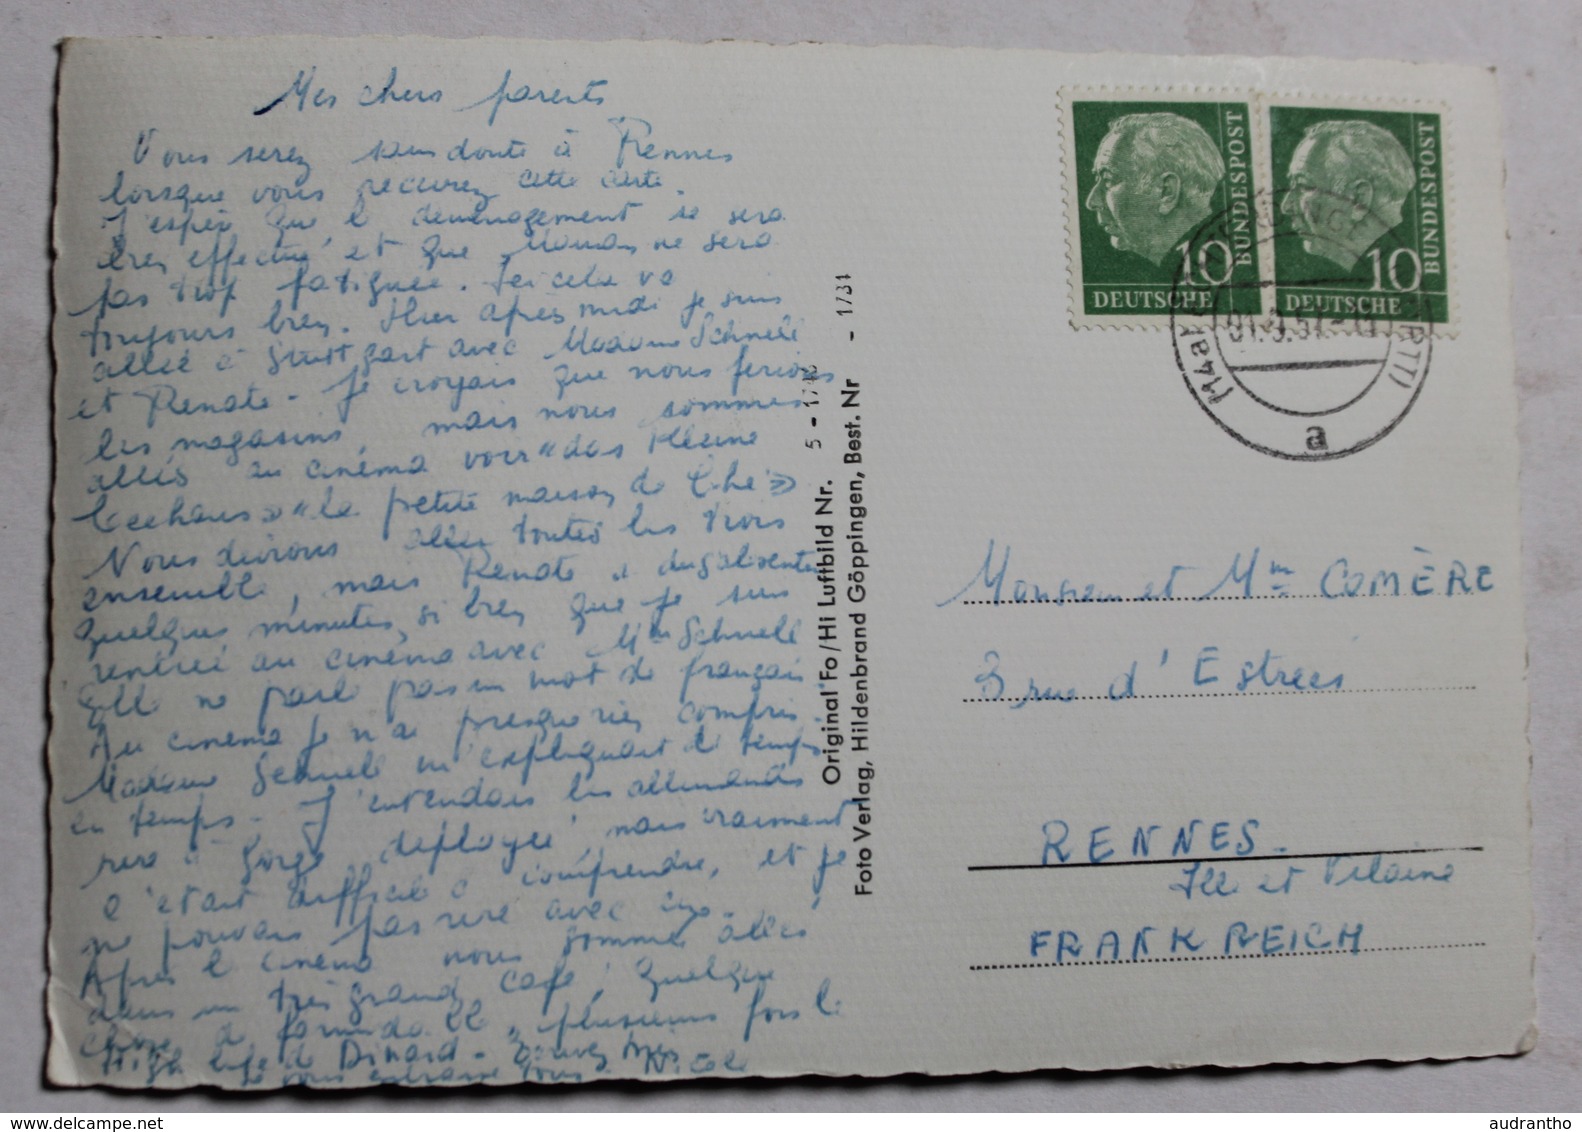 Mes chers parents
Vous serez sans doute à Rennes
lorsque vous recevrez cette carte.
J'espère que le déménagement se sera
bien effectué et que Maman ne sera
pas trop fatiguée. Ici cela va
toujours bien. Hier après midi je suis
allée à Stuttgart avec Madame Schnell
et Renate - Je croyais que nous ferions
les magasins, mais nous sommes
allés au cinéma voir "das kleine
Teehaus" "la petite maison de thé"
Nous devions aller toutes les trois
ensemble, mais Renate
quelques minutes, si bien que je suis
rentrée au cinéma avec Mme Schnell
Elle ne parle pas un mot de français.
Au cinéma je n'ai presque rien compris.
Madame Schnell m'expliquait de temps
en temps - J'entendais les allemands
rire à gorge déployée, mais vraiment
c'était difficile à comprendre, et je
ne pouvais pas rire avec eux.
Après le cinéma nous sommes allées
dans un très grand café, quelque
chose de formidable, plusieurs fois le
High life de Dinard -
Je vous embrasse tous Nicole
Original Fo/Hi Luftbild Nr. 5 -
Foto Verlag, Hildenbrand Göppingen, Best. Nr - 1731
10
DEUTSCHE
BUNDESPOST
10
DEUTSCHE
BUNDESPOST
a
Monsieur et Mme COMÈRE
3 rue d'Estrées
RENNES.
Ille et Vilaine
FRANKREICH
audrantho